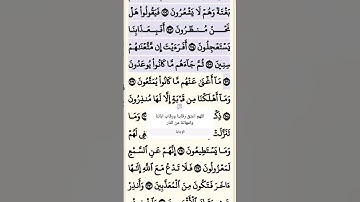 بَغْتَةً وَهُمْ لَا يَشْعُرُونَ ۝ فَيَقُولُوا۟ هَلْ
نَحْنُ مُنظَرُونَ ۝ أَفَبِعَذَابِنَا
يَسْتَعْجِلُونَ ۝ أَفَرَءَيْتَ إِن مَّتَّعْنَٰهُمْ
سِنِينَ ۝ ثُمَّ جَآءَهُم مَّا كَانُوا۟ يُوعَدُونَ
۝ مَآ أَغْنَىٰ عَنْهُم مَّا كَانُوا۟ يُمَتَّعُونَ
۝ وَمَآ أَهْلَكْنَا مِن قَرْيَةٍ إِلَّا لَهَا مُنذِرُونَ
وَمَا
اللهم اعتق رقابنا ورقاب ابائنا
وامهاتنا من النار
تَنَزَّلَتْ لَهُمْ
وَمَا يَسْتَطِيعُونَ ۝ إِنَّهُمْ عَنِ ٱلسَّمْعِ
لَمَعْزُولُونَ ۝ فَلَا تَدْعُ مَعَ ٱللَّهِ إِلَٰهًا
ءَاخَرَ فَتَكُونَ مِنَ ٱلْمُعَذَّبِينَ ۝ وَأَنذِرْ